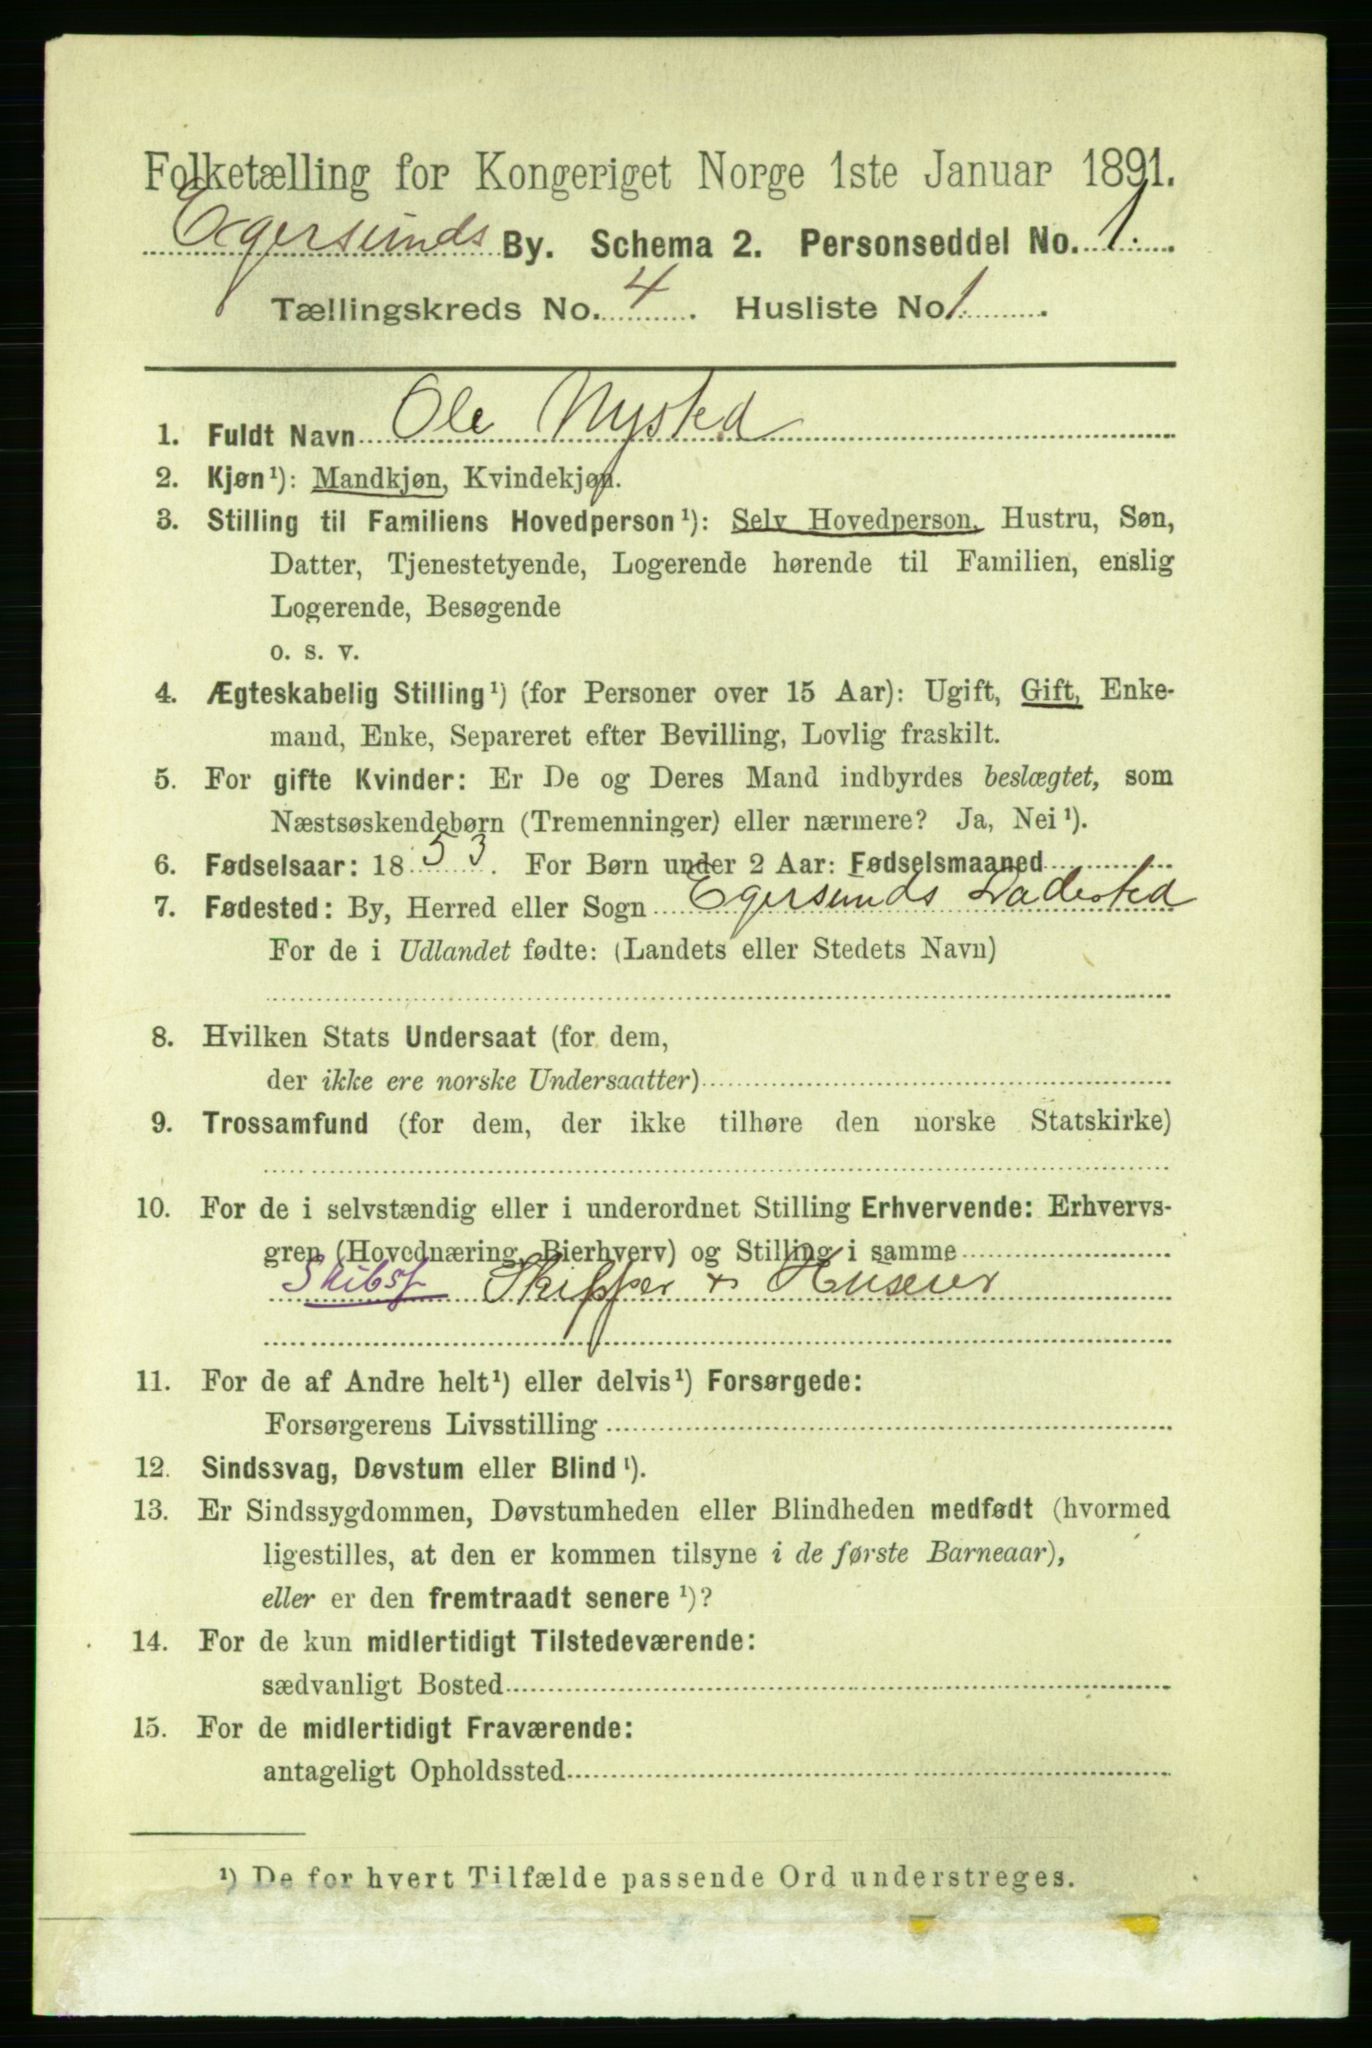 Folketælling for Kongeriget Norge 1ste Januar 1891.
Egersunds By. Schema 2. Personseddel No. 1.
Tællingskreds No. 4. Husliste No. 1.
1. Fuldt Navn Ole Nysted
2. Kjøn¹): Mandkjøn, Kvindekjøn.
3. Stilling til Familiens Hovedperson¹): Selv Hovedperson, Hustru, Søn,
Datter, Tjenestetyende, Logerende hørende til Familien, enslig
Logerende, Besøgende
o. s. v.
4. Ægteskabelig Stilling¹) (for Personer over 15 Aar): Ugift, Gift, Enke-
mand, Enke, Separeret efter Bevilling, Lovlig fraskilt.
5. For gifte Kvinder: Er De og Deres Mand indbyrdes beslægtet, som
Næstsøskendebørn (Tremenninger) eller nærmere? Ja, Nei¹).
6. Fødselsaar: 1853. For Børn under 2 Aar: Fødselsmaaned
7. Fødested: By, Herred eller Sogn Egersunds Ladested
For de i Udlandet fødte: (Landets eller Stedets Navn)
8. Hvilken Stats Undersaat (for dem,
der ikke ere norske Undersaatter)
9. Trossamfund (for dem, der ikke tilhøre den norske Statskirke)
10. For de i selvstændig eller i underordnet Stilling Erhvervende: Erhvervs-
gren (Hovednæring, Bierhverv) og Stilling i samme
Skibsf Skipper & Huseier
11. For de af Andre helt¹) eller delvis¹) Forsørgede:
Forsørgerens Livsstilling
12. Sindssvag, Døvstum eller Blind¹).
13. Er Sindssygdommen, Døvstumheden eller Blindheden medfødt (hvormed
ligestilles, at den er kommen tilsyne i de første Barneaar),
eller er den fremtraadt senere¹)?
14. For de kun midlertidigt Tilstedeværende:
sædvanligt Bosted
15. For de midlertidigt Fraværende:
antageligt Opholdssted
¹) De for hvert Tilfælde passende Ord understreges.